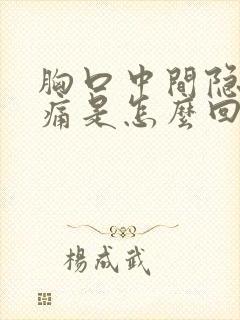 胸口中間隐
痛是怎麼回
楊成武